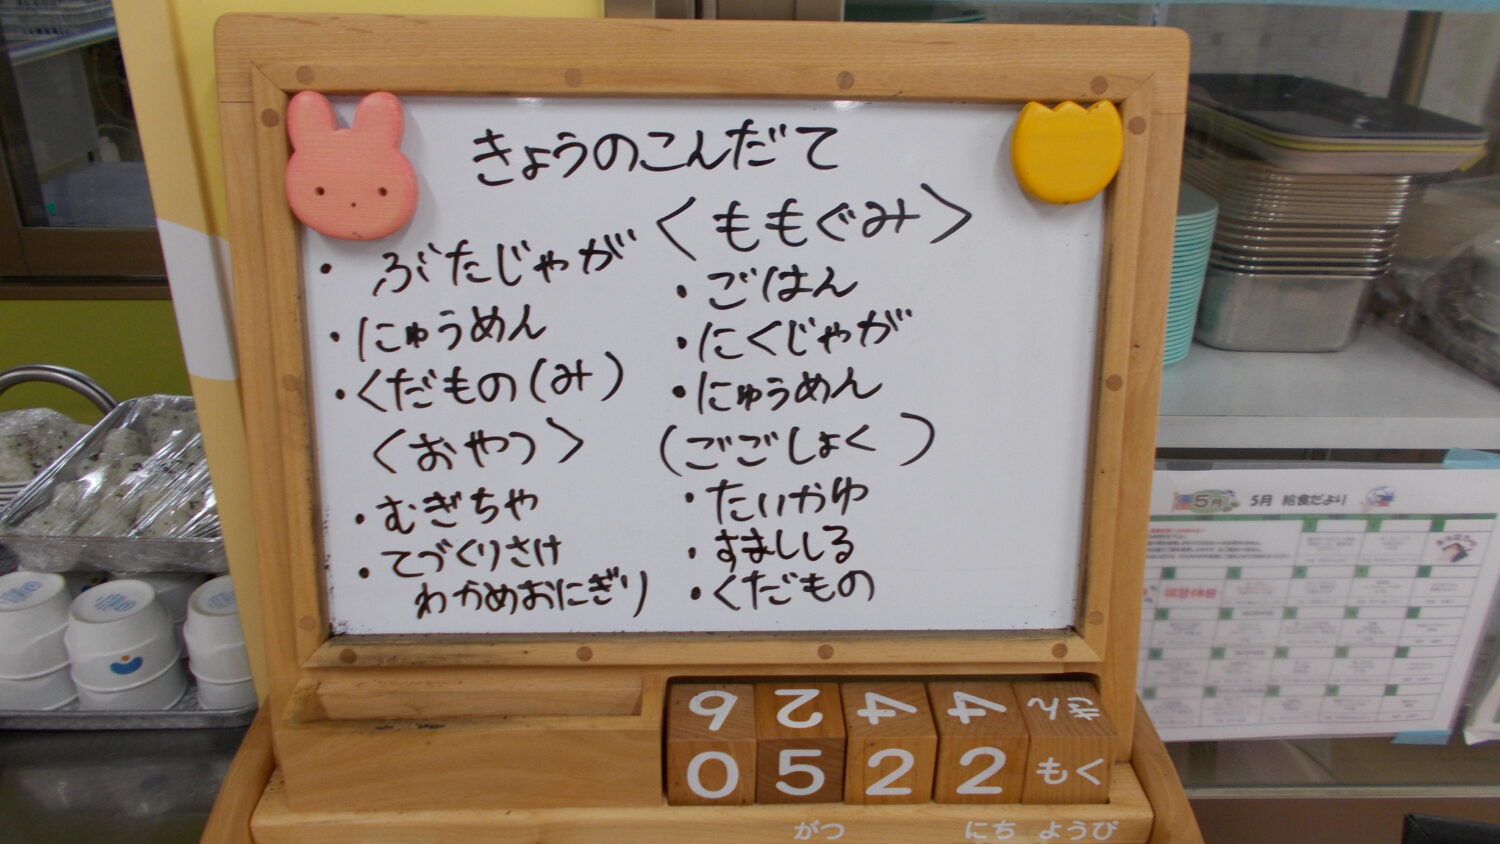 きょうのこんだて
・ぶたじゃが
・にゅうめん
・くだもの(み)
〈おやつ〉
・むぎちゃ
・てづくりさけ
わかめおにぎり
〈ももぐみ〉
・ごはん
・にくじゃが
・にゅうめん
(ごごしょく)
・たいかゆ
・すましじる
・くだもの
6 2 4 4 きん
0 5 2 2 もく
がつ にち ようび
5月 5月 給食だより